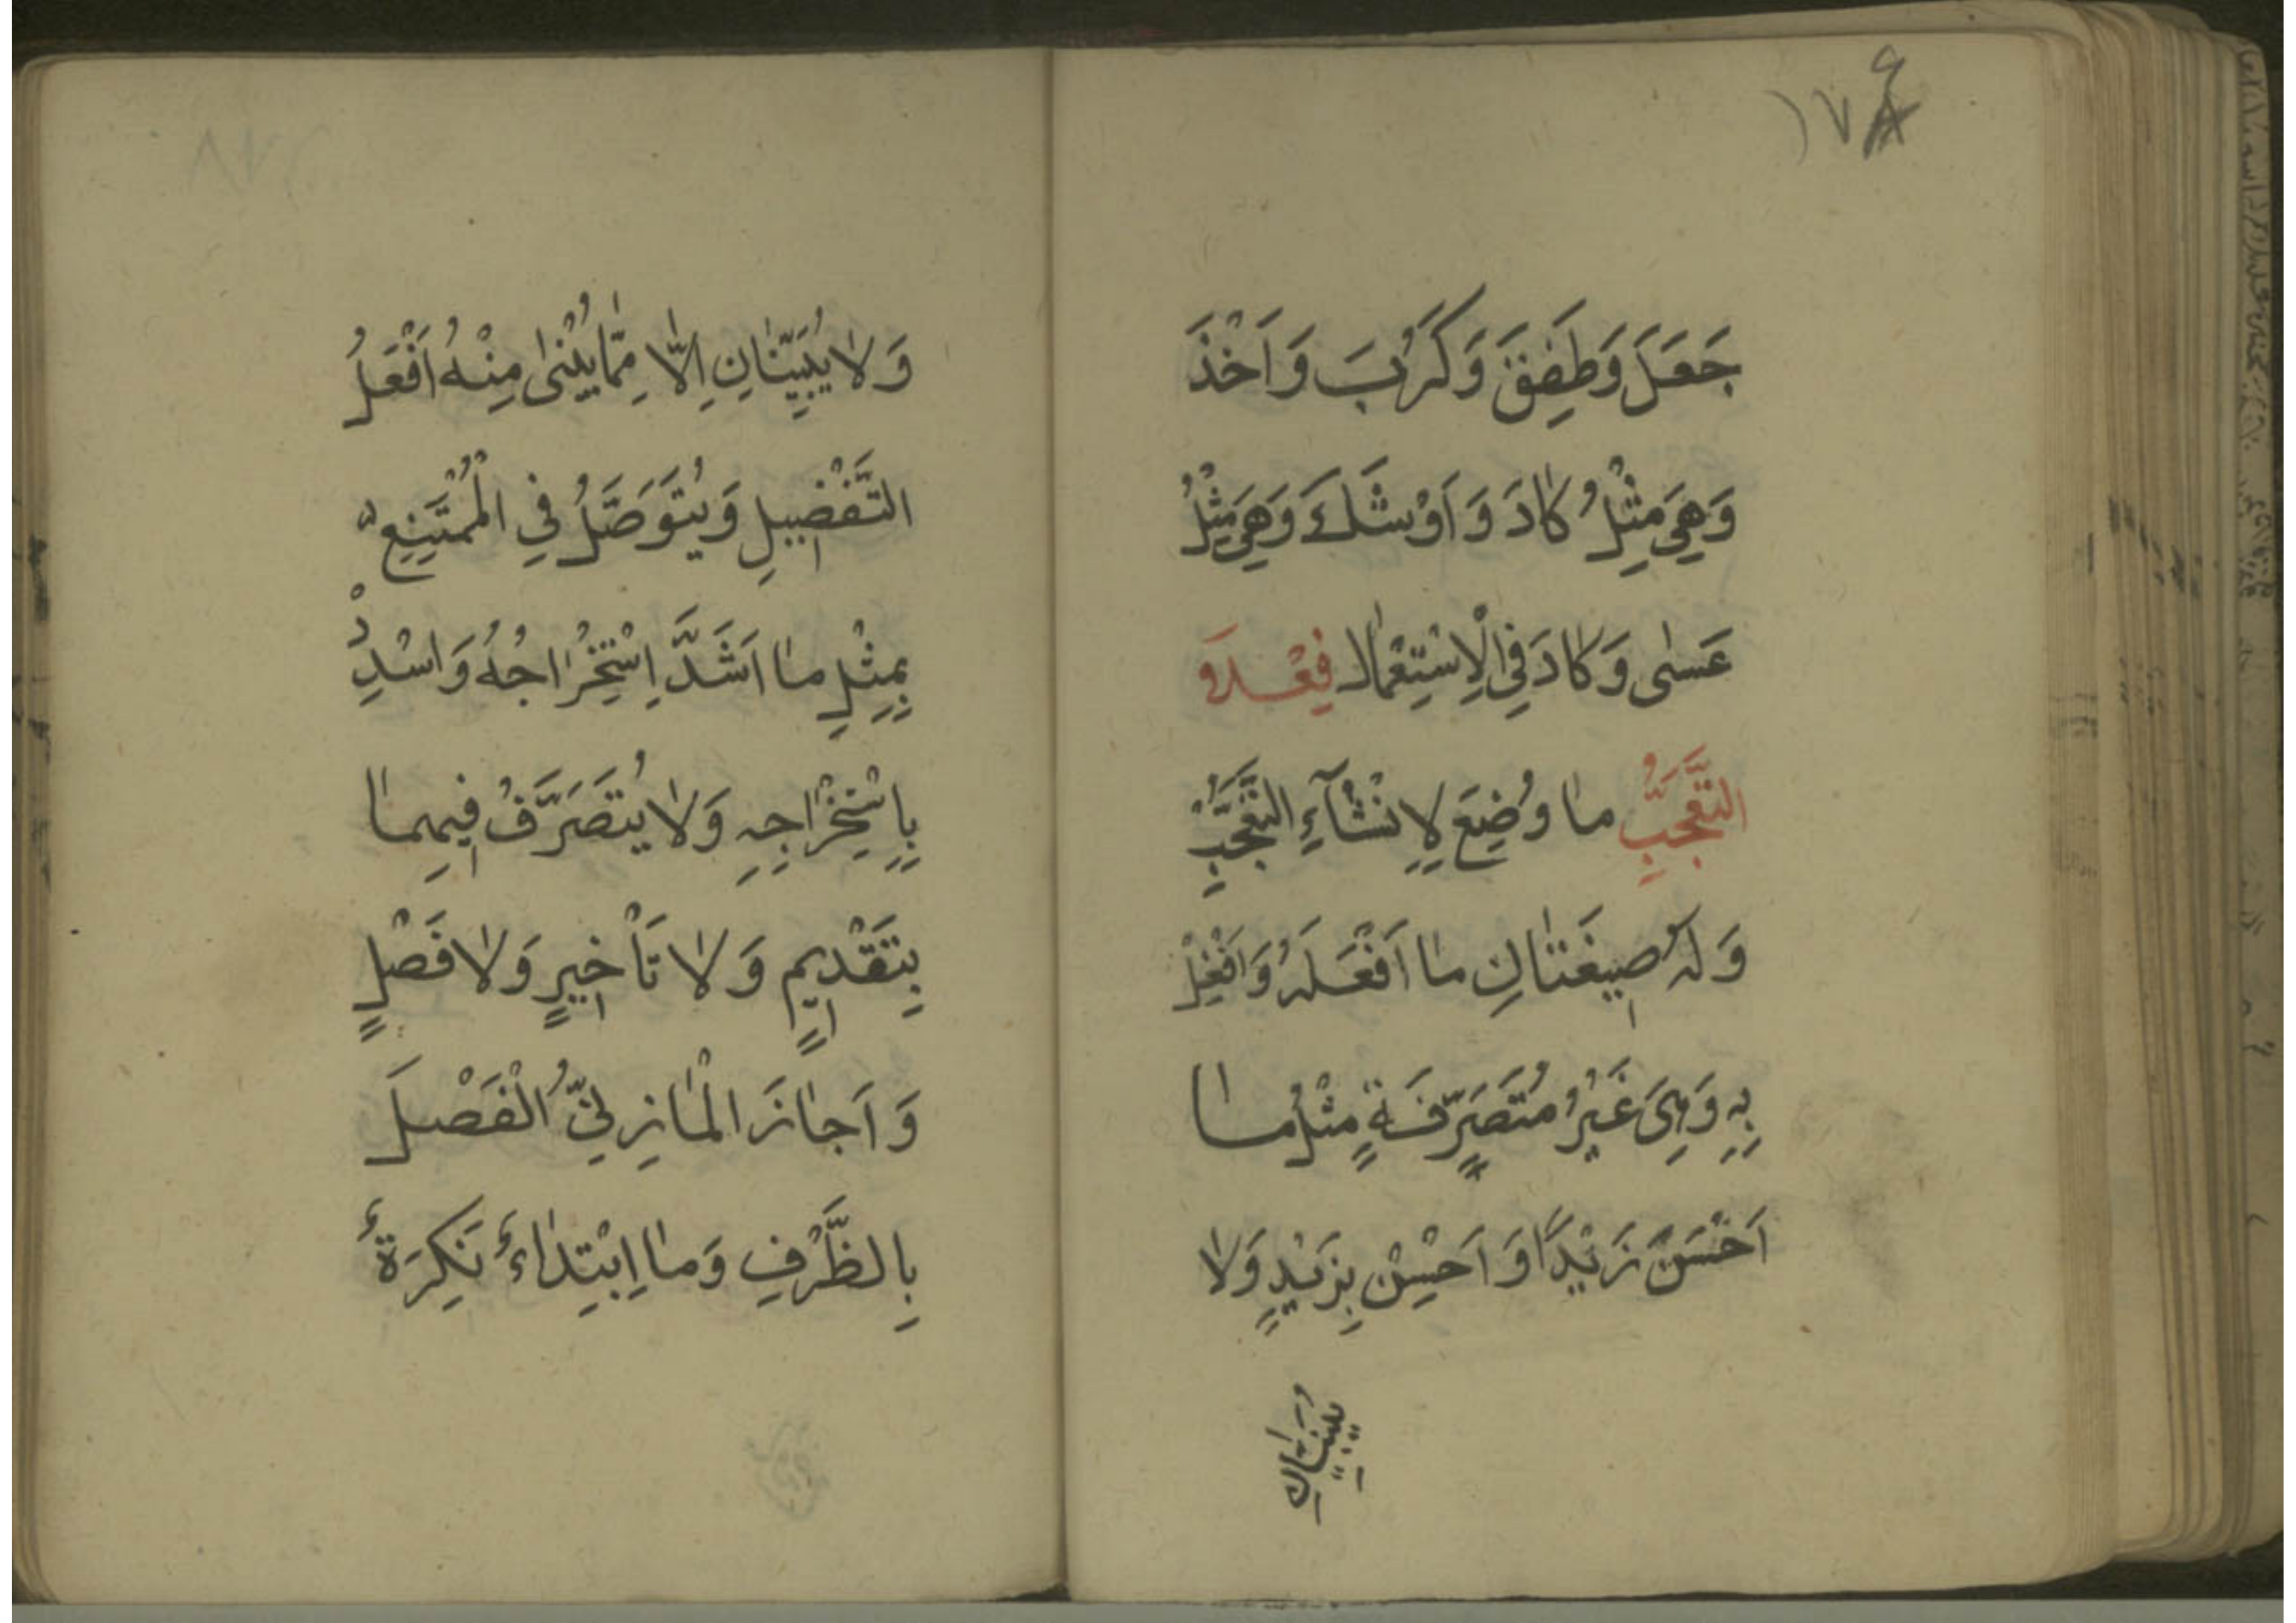 جَعَلَ وَطَفِقَ وَكَرُبَ وَاَخَذَ
وَهِيَ مِثْلُ كَادَ وَاَوْشَكَ وَهِيَ مِثْلُ
عَسٰى وَكَادَ فِي الْاِسْتِعْمَالِ فِعْلَا
التَّعَجُّبِ مَا وُضِعَ لِاِنْشَآءِ التَّعَجُّبِ
وَلَهُ صِيغَتَانِ مَا اَفْعَلَهُ وَاَفْعِلْ
بِهِ وَهِيَ غَيْرُ مُتَصَرِّفَةٍ مِثْلُ مَا
اَحْسَنَ زَيْدًا وَاَحْسِنْ بِزَيْدٍ وَلَا
يُبَيَّنَانِ
وَلَا يُبَيَّنَانِ اِلَّا مِمَّا يُبْنٰى مِنْهُ اَفْعَلُ
التَّفْضِيلِ وَيُتَوَصَّلُ فِي الْمُمْتَنِعِ
بِمِثْلِ مَا اَشَدَّ اِسْتِخْرَاجُهُ وَاشْدِدْ
بِاِسْتِخْرَاجِهِ وَلَا يُتَصَرَّفُ فِيهِمَا
بِتَقْدِيمٍ وَلَا تَأْخِيرٍ وَلَا فَصْلٍ
وَاَجَازَ الْمَازِنِيُّ الْفَصْلَ
بِالظَّرْفِ وَمَا اِبْتِدَاءٌ نَكِرَةٌ